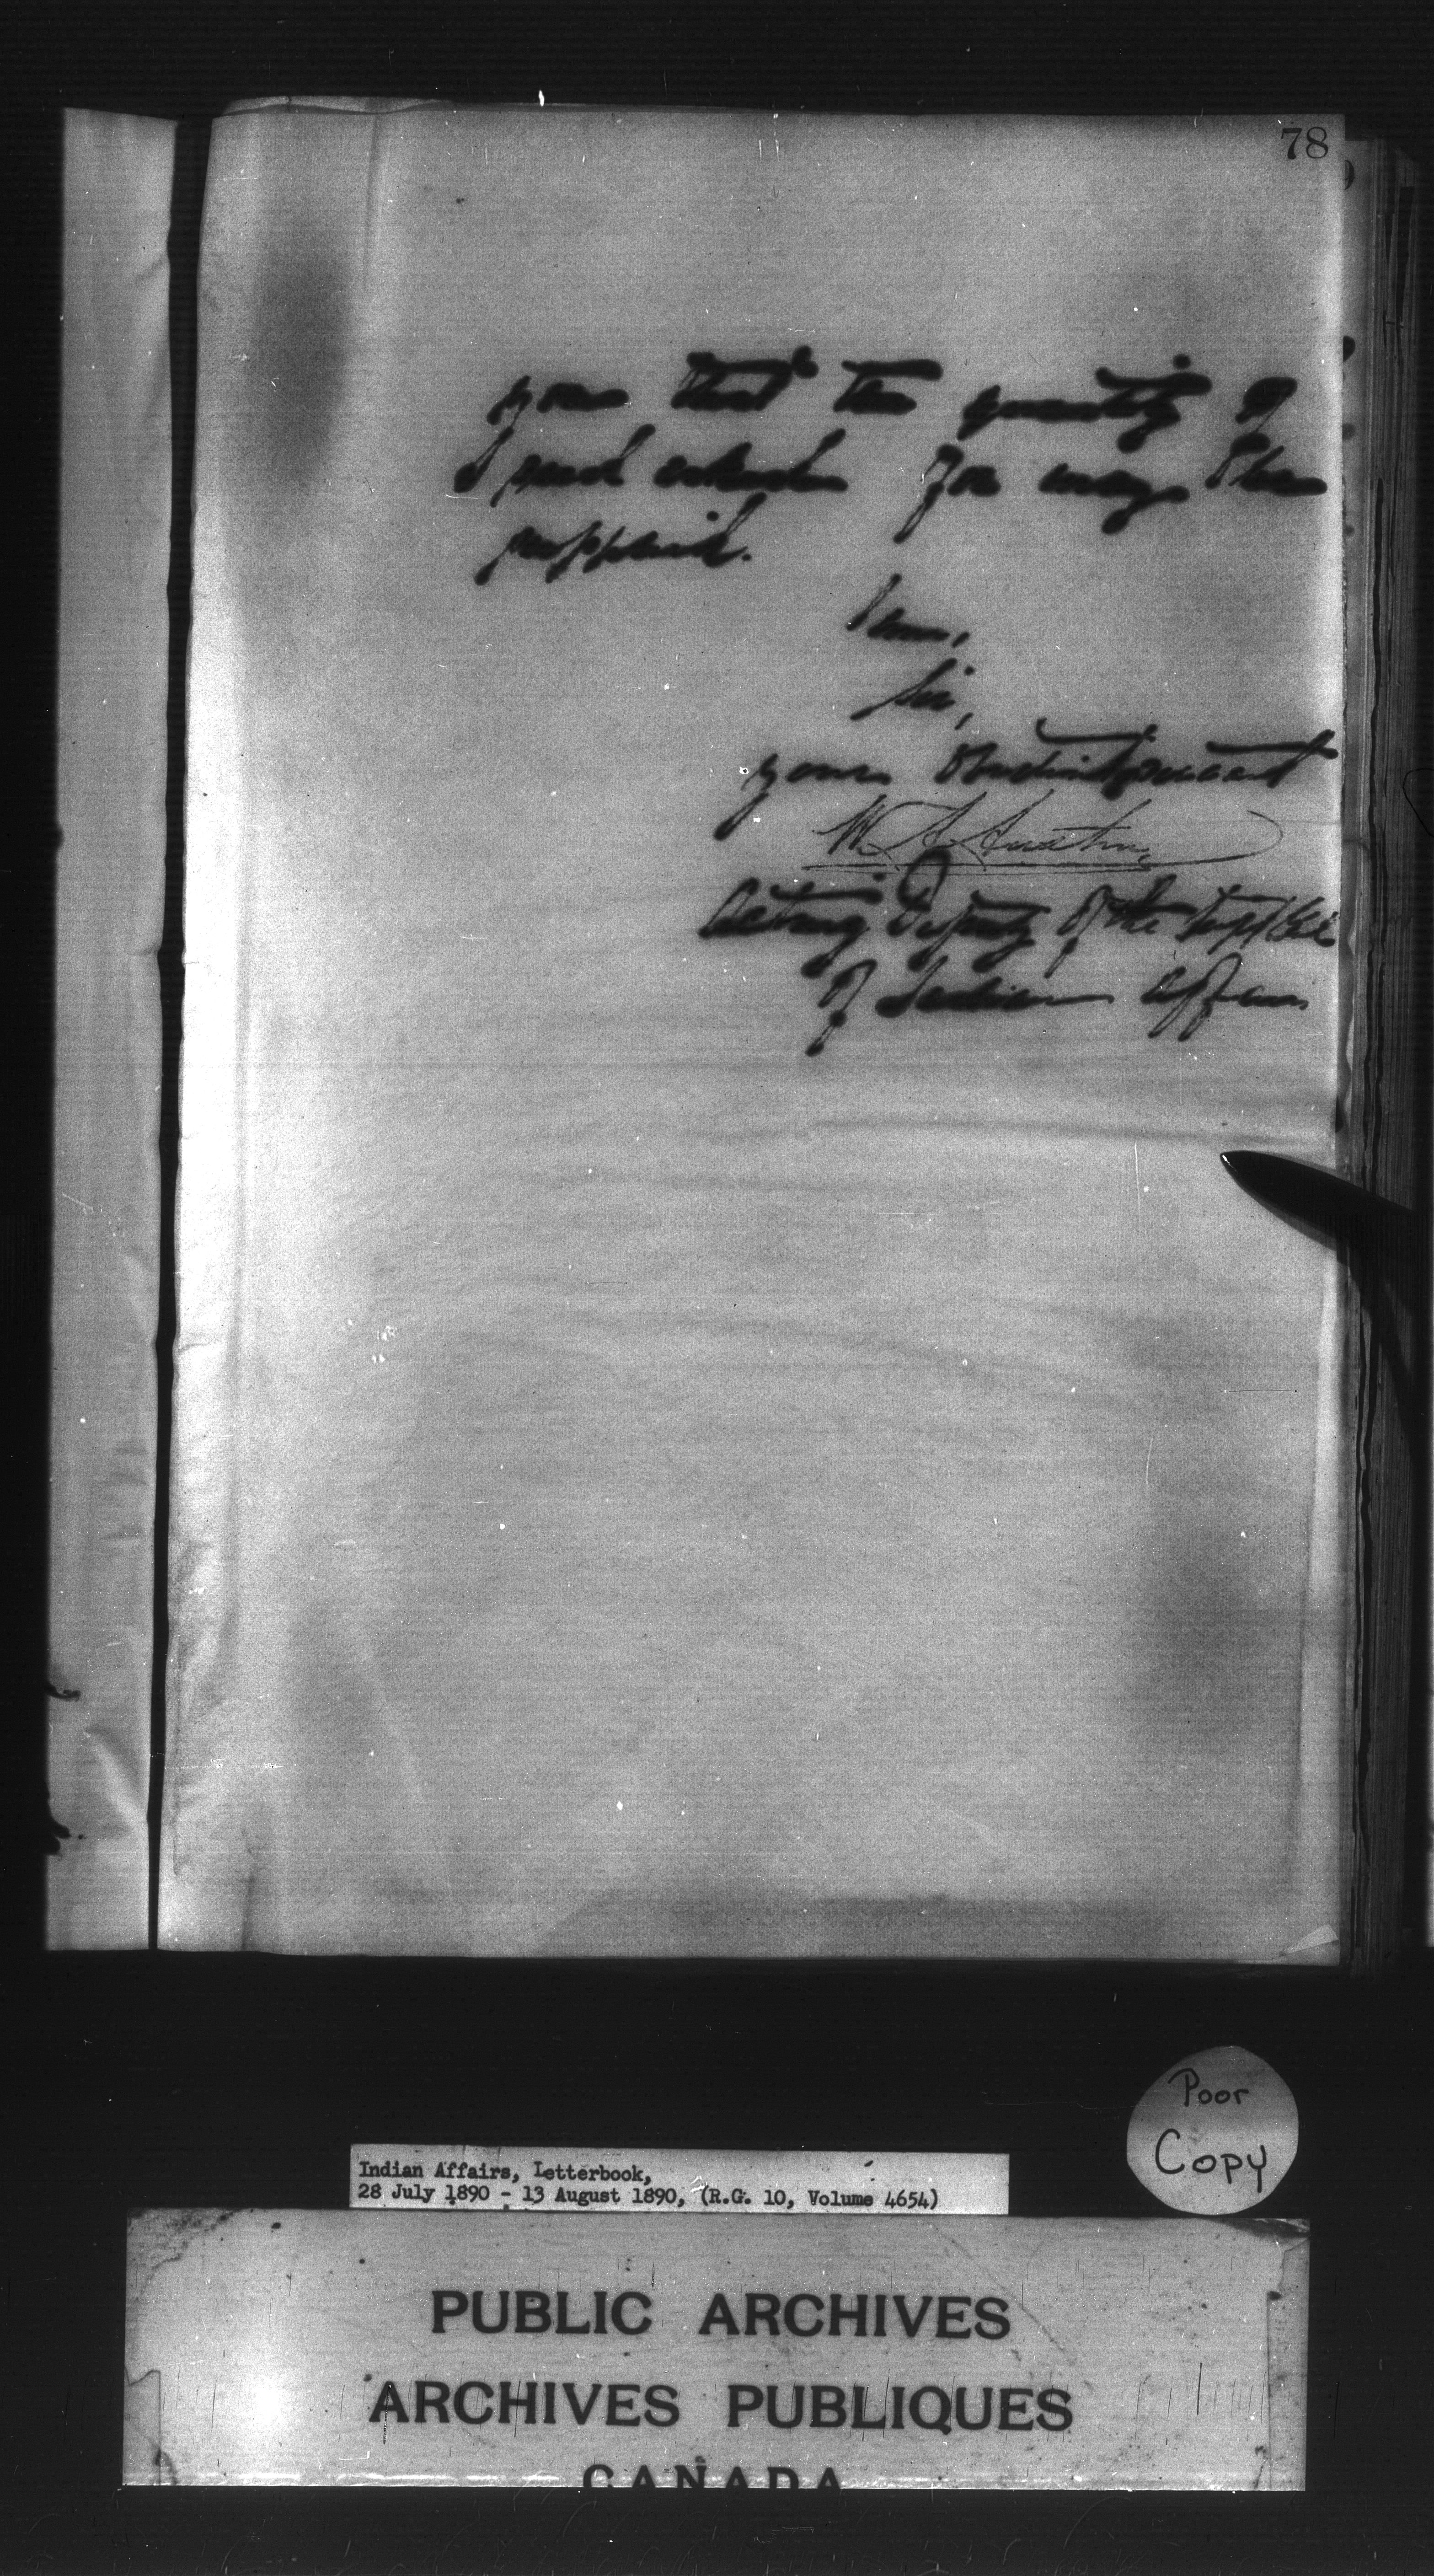 78
you that the quantity of
seed for may be
supplied.
I am,
Sir,
your obedient servant
W. A. Austin
Acting Deputy of the Supt Genl
of Indian Affairs
Poor
Copy
Indian Affairs, Letterbook,
28 July 1890 - 13 August 1890, (R.G. 10, Volume 4654)
PUBLIC ARCHIVES
ARCHIVES PUBLIQUES
CANADA